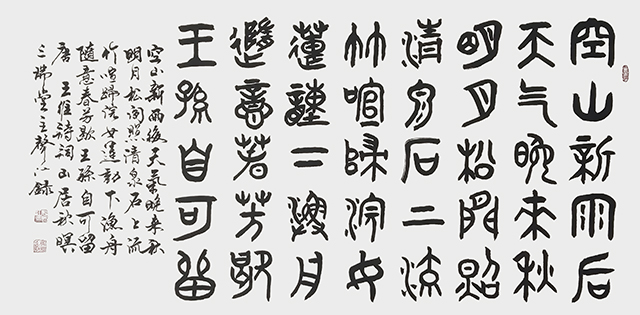 空山新雨后
天气晚来秋
明月松間照
清泉石上流
竹喧歸浣女
蓮動下漁舟
隨意春芳歇
王孫自可留
空山新雨後天氣晚来秋
明月松间照清泉石上流
竹喧歸浣女蓮動下漁舟
随意春芳歇王孫自可留
唐 王維诗詞山居秋暝
三瑞堂主聲江錄